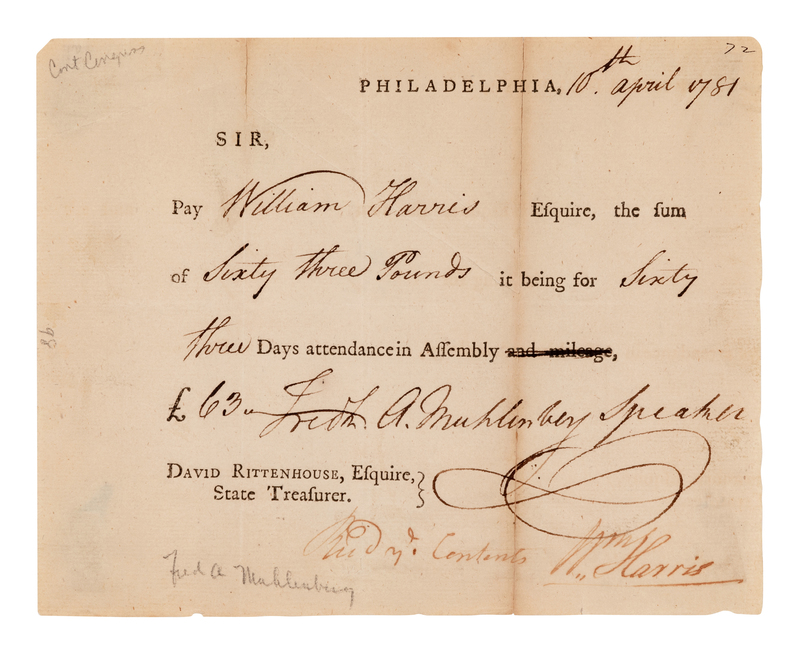 Cont Congress
72
PHILADELPHIA, 10th. april 1781
SIR,
Pay William Harris Eſquire, the ſum
of Sixty three Pounds it being for Sixty
three Days attendance in Aſſembly and mileage,
£ 63 Fredk. A. Muhlenberg Speaker
DAVID RITTENHOUSE, Eſquire,
State Treaſurer.
Recd ye. Contents Wm Harris
Fred A Muhlenberg
98